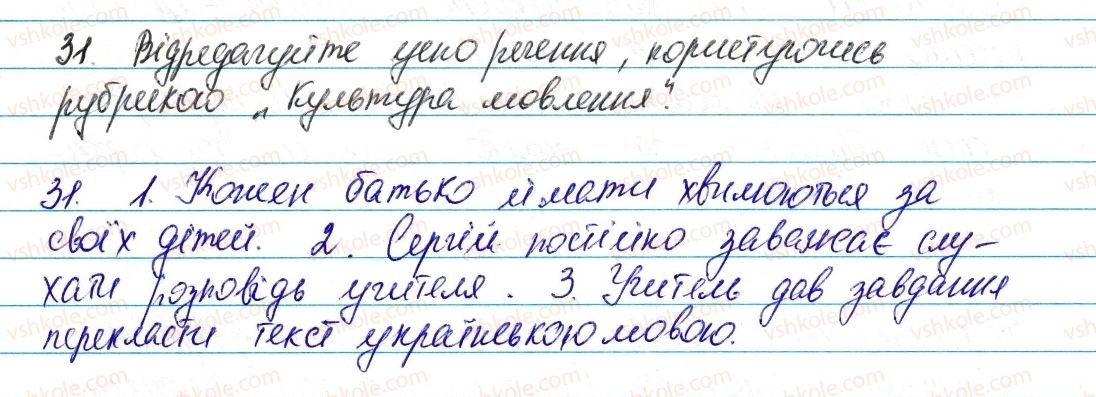 31. Відредагуйте усно речення, користуючись
рубрикою „Культура мовлення".
31. 1. Кожен батько й мати хвилюються за
своїх дітей. 2. Сергій постійно заважає слу-
хати розповідь учителя. 3. Учитель дав завдання
перекласти текст українською мовою.